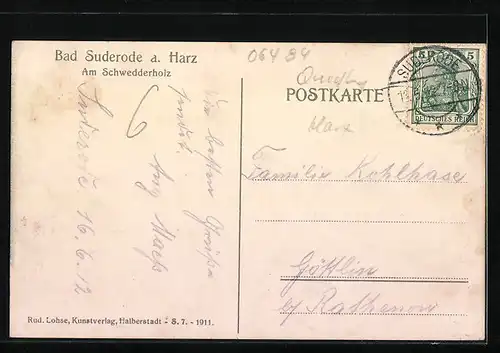 Bad Suderode a. Harz
Am Schwedderholz
Suderode 16.6.12
Die besten Grüße
sendet
Aug
6
Rud. Lohse, Kunstverlag, Halberstadt - S. 7. - 1911.
06484
Harz
POSTKARTE
5 5
DEUTSCHES REICH
SUDERODE
Familie Kohlhase
Göttlin
by Rathenow